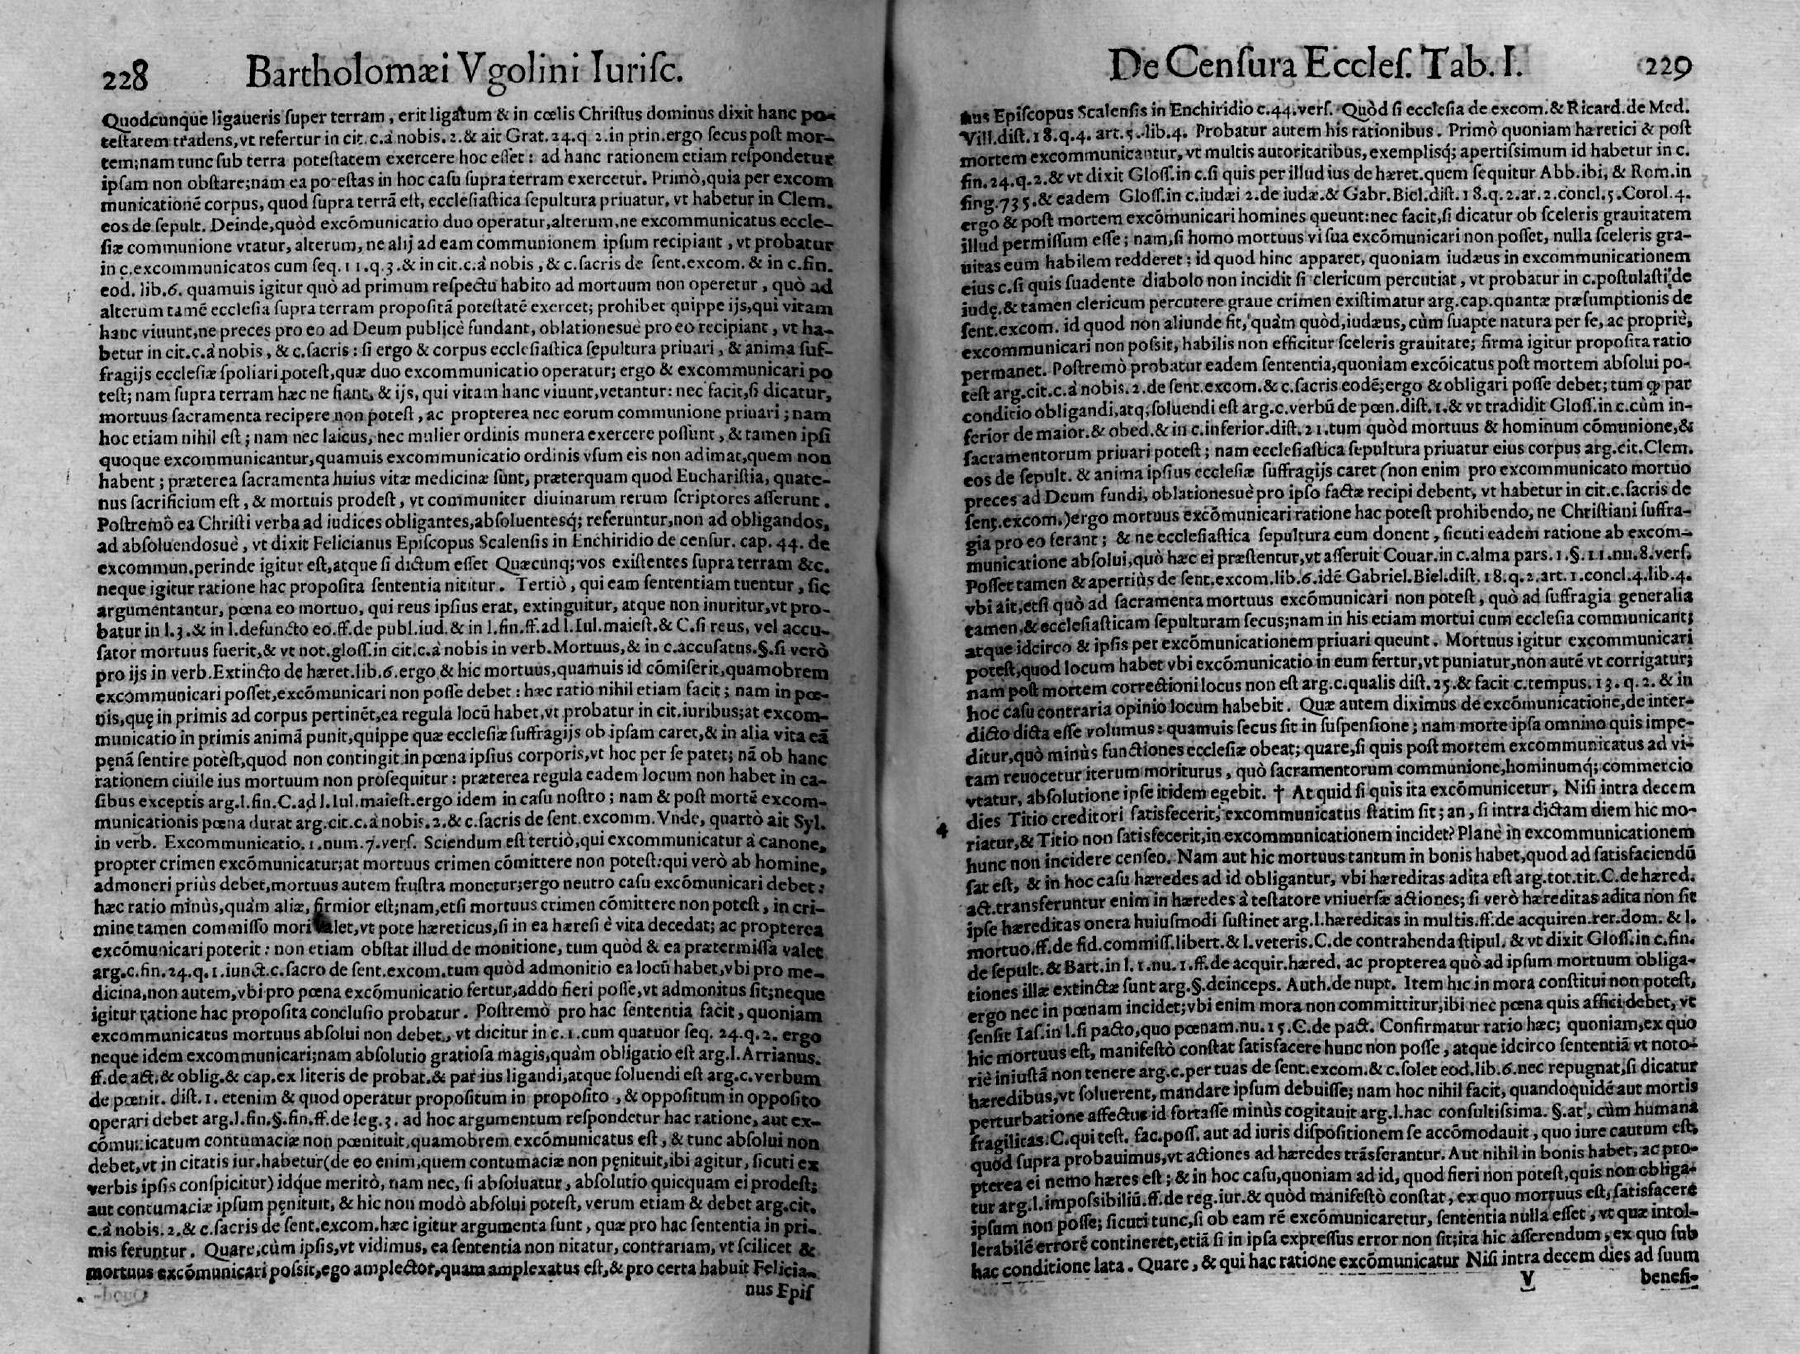 228 Bartholomæi Vgolini Iurisc.
Quodcunque ligaueris super terram, erit ligatum & in cœlis Christus dominus dixit hanc po-
testatem tradens, vt refertur in cit. c. à nobis. 2. & ait Grat. 24. q. 2. in prin. ergo secus post mor-
tem; nam tunc sub terra potestatem exercere hoc esset: ad hanc rationem etiam respondetur
ipsam non obstare; nam ea potestas in hoc casu supra terram exercetur. Primò, quia per excom
municationē corpus, quod supra terrā est, ecclesiastica sepultura priuatur, vt habetur in Clem.
eos de sepult. Deinde, quòd excōmunicatio duo operatur, alterum, ne excommunicatus eccle-
siæ communione vtatur, alterum, ne alij ad eam communionem ipsum recipiant, vt probatur
in c. excommunicatos cum seq. 11. q. 3. & in cit. c. à nobis, & c. sacris de sent. excom. & in c. fin.
eod. lib. 6. quamuis igitur quò ad primum respectu habito ad mortuum non operetur, quò ad
alterum tamē ecclesia supra terram propositā potestatē exercet; prohibet quippe ijs, qui vitam
hanc viuunt, ne preces pro eo ad Deum publicè fundant, oblationesuè pro eo recipiant, vt ha-
betur in cit. c. à nobis, & c. sacris: si ergo & corpus ecclesiastica sepultura priuari, & anima suf-
fragijs ecclesiæ spoliari potest, quæ duo excommunicatio operatur; ergo & excommunicari po
test; nam supra terram hæc ne fiant, & ijs, qui vitam hanc viuunt, vetantur: nec facit, si dicatur,
mortuus sacramenta recipere non potest, ac propterea nec eorum communione priuari; nam
hoc etiam nihil est; nam nec laicus, nec mulier ordinis munera exercere possunt, & tamen ipsi
quoque excommunicantur, quamuis excommunicatio ordinis vsum eis non adimat, quem non
habent; præterea sacramenta huius vitæ medicinæ sunt, præterquam quod Eucharistia, quate-
nus sacrificium est, & mortuis prodest, vt communiter diuinarum rerum scriptores asserunt.
Postremò ea Christi verba ad iudices obligantes, absoluentesq; referuntur, non ad obligandos,
ad absoluendosuè, vt dixit Felicianus Episcopus Scalensis in Enchiridio de censur. cap. 44. de
excommun. perinde igitur est, atque si dictum esset Quæcunq; vos existentes supra terram &c.
neque igitur ratione hac proposita sententia nititur. Tertiò, qui eam sententiam tuentur, sic
argumentantur, pœna eo mortuo, qui reus ipsius erat, extinguitur, atque non inuritur, vt pro-
batur in l. 3. & in l. defuncto eo. ff. de publ. iud. & in l. fin. ff. ad l. Iul. maiest. & C. si reus, vel accu-
sator mortuus fuerit, & vt not. gloss. in cit. c. à nobis in verb. Mortuus, & in c. accusatus. §. si verò
pro ijs in verb. Extincto de hæret. lib. 6. ergo & hic mortuus, quamuis id cōmiserit, quamobrem
excommunicari posset, excōmunicari non posse debet: hæc ratio nihil etiam facit; nam in pœ-
nis, quę in primis ad corpus pertinēt, ea regula locū habet, vt probatur in cit. iuribus; at excom-
municatio in primis animā punit, quippe quæ ecclesiæ suffragijs ob ipsam caret, & in alia vita eā
pęnā sentire potèst, quod non contingit in pœna ipsius corporis, vt hoc per se patet; nā ob hanc
rationem ciuile ius mortuum non prosequitur: præterea regula eadem locum non habet in ca-
sibus exceptis arg. l. fin. C. ad l. Iul. maiest. ergo idem in casu nostro; nam & post mortē excom-
municationis pœna durat arg. cit. c. à nobis. 2. & c. sacris de sent. excomm. Vnde, quartò ait Syl.
in verb. Excommunicatio. 1. num. 7. vers. Sciendum est tertiò, qui excommunicatur à canone,
propter crimen excōmunicatur; at mortuus crimen cōmittere non potest: qui verò ab homine,
admoneri priùs debet, mortuus autem frustra monetur; ergo neutro casu excōmunicari debet:
hæc ratio minùs, quàm aliæ, firmior est; nam, etsi mortuus crimen cōmittere non potest, in cri-
mine tamen commisso mori valet, vt pote hæreticus, si in ea hæresi è vita decedat; ac propterea
excōmunicari poterit: non etiam obstat illud de monitione, tum quòd & ea prætermissa valet
arg. c. fin. 24. q. 1. iunct. c. sacro de sent. excom. tum quòd admonitio ea locū habet, vbi pro me-
dicina, non autem, vbi pro pœna excōmunicatio fertur, addo fieri posse, vt admonitus sit; neque
igitur ratione hac proposita conclusio probatur. Postremò pro hac sententia facit, quoniam
excommunicatus mortuus absolui non debet, vt dicitur in c. 1. cum quatuor seq. 24. q. 2. ergo
neque idem excommunicari; nam absolutio gratiosa magis, quàm obligatio est arg. l. Arrianus.
ff. de act. & oblig. & cap. ex literis de probat. & par ius ligandi, atque soluendi est arg. c. verbum
de pœnit. dist. 1. etenim & quod operatur propositum in proposito, & oppositum in opposito
operari debet arg. l. fin. §. fin. ff. de leg. 3. ad hoc argumentum respondetur hac ratione, aut ex-
cōmunicatum contumaciæ non pœnituit, quamobrem excōmunicatus est, & tunc absolui non
debet, vt in citatis iur. habetur (de eo enim, quem contumaciæ non pęnituit, ibi agitur, sicuti ex
verbis ipsis conspicitur) idque meritò, nam nec, si absoluatur, absolutio quicquam ei prodest;
aut contumaciæ ipsum pęnituit, & hic non modò absolui potest, verum etiam & debet arg. cit.
c. à nobis. 2. & c. sacris de sent. excom. hæc igitur argumenta sunt, quæ pro hac sententia in pri-
mis feruntur. Quare, cùm ipsis, vt vidimus, ea sententia non nitatur, contrariam, vt scilicet &
mortuus excōmunicari possit, ego amplector, quam amplexatus est, & pro certa habuit Felicia-
nus Epis
De Censura Eccles. Tab. I. 229
nus Episcopus Scalensis in Enchiridio c. 44. vers. Quòd si ecclesia de excom. & Ricard. de Med.
Vill. dist. 18. q. 4. art. 5. lib. 4. Probatur autem his rationibus. Primò quoniam hæretici & post
mortem excommunicantur, vt multis autoritatibus, exemplisq; apertissimum id habetur in c.
fin. 24. q. 2. & vt dixit Gloss. in c. si quis per illud ius de hæret. quem sequitur Abb. ibi, & Rom. in
sing. 735. & eadem Gloss. in c. iudæi 2. de iudæ. & Gabr. Biel. dist. 18. q. 2. ar. 2. concl. 5. Corol. 4.
ergo & post mortem excōmunicari homines queunt: nec facit, si dicatur ob sceleris grauitatem
illud permissum esse; nam, si homo mortuus vi sua excōmunicari non posset, nulla sceleris gra-
uitas eum habilem redderet; id quod hinc apparet, quoniam iudæus in excommunicationem
eius c. si quis suadente diabolo non incidit si clericum percutiat, vt probatur in c. postulasti de
iudę. & tamen clericum percutere graue crimen existimatur arg. cap. quantæ præsumptionis de
sent. excom. id quod non aliunde fit, quàm quòd, iudæus, cùm suapte natura per se, ac propriè,
excommunicari non possit, habilis non efficitur sceleris grauitate; firma igitur proposita ratio
permanet. Postremò probatur eadem sententia, quoniam excōicatus post mortem absolui po-
test arg. cit. c. à nobis. 2. de sent. excom. & c. sacris eodē; ergo & obligari posse debet; tum ꝙ par
conditio obligandi, atq; soluendi est arg. c. verbū de pœn. dist. 1. & vt tradidit Gloss. in c. cùm in-
ferior de maior. & obed. & in c. inferior. dist. 21. tum quòd mortuus & hominum cōmunione, &
sacramentorum priuari potest; nam ecclesiastica sepultura priuatur eius corpus arg. cit. Clem.
eos de sepult. & anima ipsius ecclesiæ suffragijs caret (non enim pro excommunicato mortuo
preces ad Deum fundi, oblationesuè pro ipso factæ recipi debent, vt habetur in cit. c. sacris de
sent. excom.) ergo mortuus excōmunicari ratione hac potest prohibendo, ne Christiani suffra-
gia pro eo ferant; & ne ecclesiastica sepultura eum donent, sicuti eadem ratione ab excom-
municatione absolui, quò hæc ei præstentur, vt asseruit Couar. in c. alma pars. 1. §. 11. nu. 8. vers.
Posset tamen & apertiùs de sent. excom. lib. 6. idē Gabriel. Biel. dist. 18. q. 2. art. 1. concl. 4. lib. 4.
vbi ait, etsi quò ad sacramenta mortuus excōmunicari non potest, quò ad suffragia generalia
tamen, & ecclesiasticam sepulturam secus; nam in his etiam mortui cum ecclesia communicant;
atque idcirco & ipsis per excōmunicationem priuari queunt. Mortuus igitur excommunicari
potest, quod locum habet vbi excōmunicatio in eum fertur, vt puniatur, non autē vt corrigatur;
nam post mortem correctioni locus non est arg. c. qualis dist. 25. & facit c. tempus. 13. q. 2. & in
hoc casu contraria opinio locum habebit. Quæ autem diximus de excōmunicatione, de inter-
dicto dicta esse volumus: quamuis secus sit in suspensione; nam morte ipsa omnino quis impe-
ditur, quò minùs functiones ecclesiæ obeat; quare, si quis post mortem excommunicatus ad vi-
tam reuocetur iterum moriturus, quò sacramentorum communione, hominumq; commercio
vtatur, absolutione ipse itidem egebit. † At quid si quis ita excōmunicetur, Nisi intra decem
dies Titio creditori satisfecerit, excommunicatus statim sit; an, si intra dictam diem hic mo-
4 riatur, & Titio non satisfecerit, in excommunicationem incidet? Planè in excommunicationem
hunc non incidere censeo. Nam aut hic mortuus tantum in bonis habet, quod ad satisfaciendū
sat est, & in hoc casu hæredes ad id obligantur, vbi hæreditas adita est arg. tot. tit. C. de hæred.
act. transferuntur enim in hæredes à testatore vniuersæ actiones; si verò hæreditas adita non sit
ipse hæreditas onera huiusmodi sustinet arg. l. hæreditas in multis. ff. de acquiren. rer. dom. & l.
mortuo. ff. de fid. commiss. libert. & l. veteris. C. de contrahenda stipul. & vt dixit Gloss. in c. fin.
de sepult. & Bart. in l. 1. nu. 1. ff. de acquir. hæred. ac propterea quò ad ipsum mortuum obliga-
tiones illæ extinctæ sunt arg. §. deinceps. Auth. de nupt. Item hic in mora constitui non potest,
ergo nec in pœnam incidet; vbi enim mora non committitur, ibi nec pœna quis affici debet, vt
sensit Ias. in l. si pacto, quo pœnam. nu. 15. C. de pact. Confirmatur ratio hæc; quoniam, ex quo
hic mortuus est, manifestò constat satisfacere hunc non posse, atque idcirco sententiā vt noto-
riè iniustā non tenere arg. c. per tuas de sent. excom. & c. solet eod. lib. 6. nec repugnat, si dicatur
hæredibus, vt soluerent, mandare ipsum debuisse; nam hoc nihil facit, quandoquidē aut mortis
perturbatione affectus id fortasse minùs cogitauit arg. l. hac consultissima. §. at, cùm humana
fragilitas. C. qui test. fac. poss. aut ad iuris dispositionem se accōmodauit, quo iure cautum est,
quod supra probauimus, vt actiones ad hæredes trāsferantur. Aut nihil in bonis habet, ac pro-
pterea ei nemo hæres est; & in hoc casu, quoniam ad id, quod fieri non potest, quis non obliga-
tur arg. l. impossibiliū. ff. de reg. iur. & quòd manifestò constat, ex quo mortuus est, satisfacere
ipsum non posse; sicuti tunc, si ob eam rē excōmunicaretur, sententia nulla esset, vt quæ intol-
lerabilē errorē contineret, etiā si in ipsa expressus error non sit; ita hic asserendum, ex quo sub
hac conditione lata. Quare, & qui hac ratione excōmunicatur Nisi intra decem dies ad suum
V benefi-